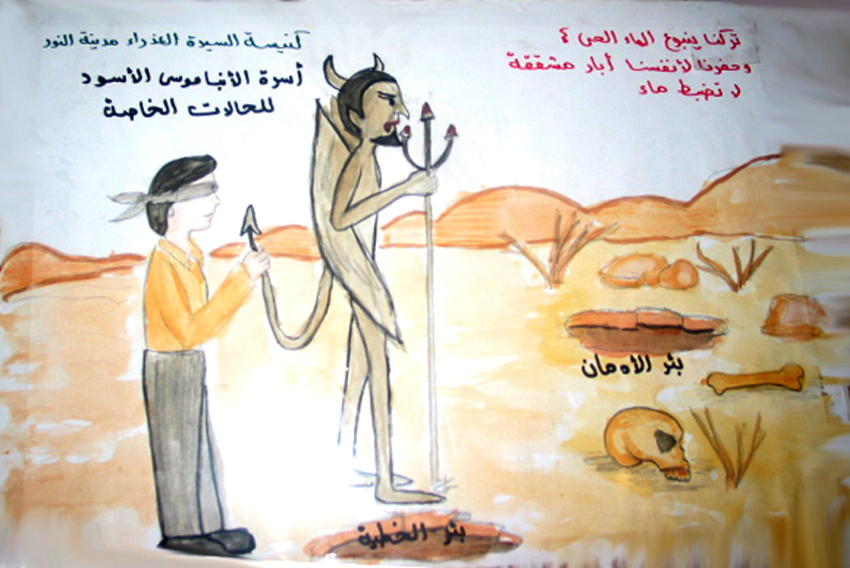 كنيسة السيدة العذراء مدينة النور
أسرة الأنبا موسى الأسود
للحالات الخاصة
تركنا ينبوع الماء الحى ؟
وحفرنا لأنفسنا أبار مشققة
لا تضبط ماء
بئر الأدمان
بئر الخطية